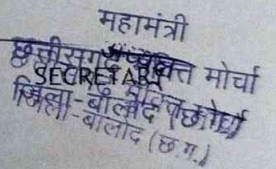 महामंत्री
छत्तीसगढ़ मुक्ति मोर्चा
SECRETARY
जिला-बालोद (छ.ग.)
जिला-बालोद (छ.ग.)